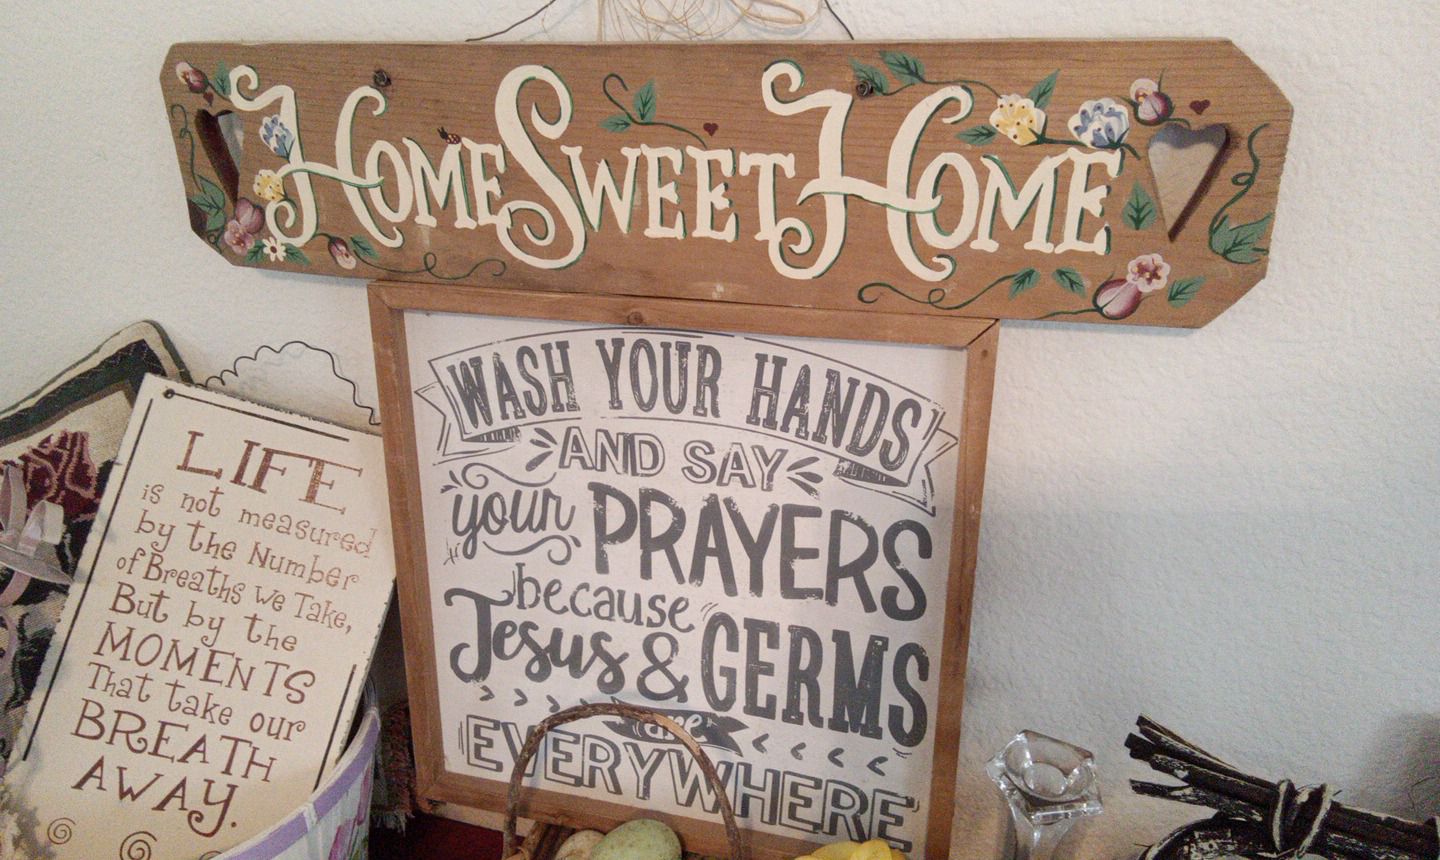 Home Sweet Home
WASH YOUR HANDS
AND SAY
your PRAYERS
because
Jesus & GERMS
are
EVERYWHERE
LIFE
is not measured
by the Number
of Breaths we Take,
But by the
MOMENTS
That take our
BREATH
AWAY.